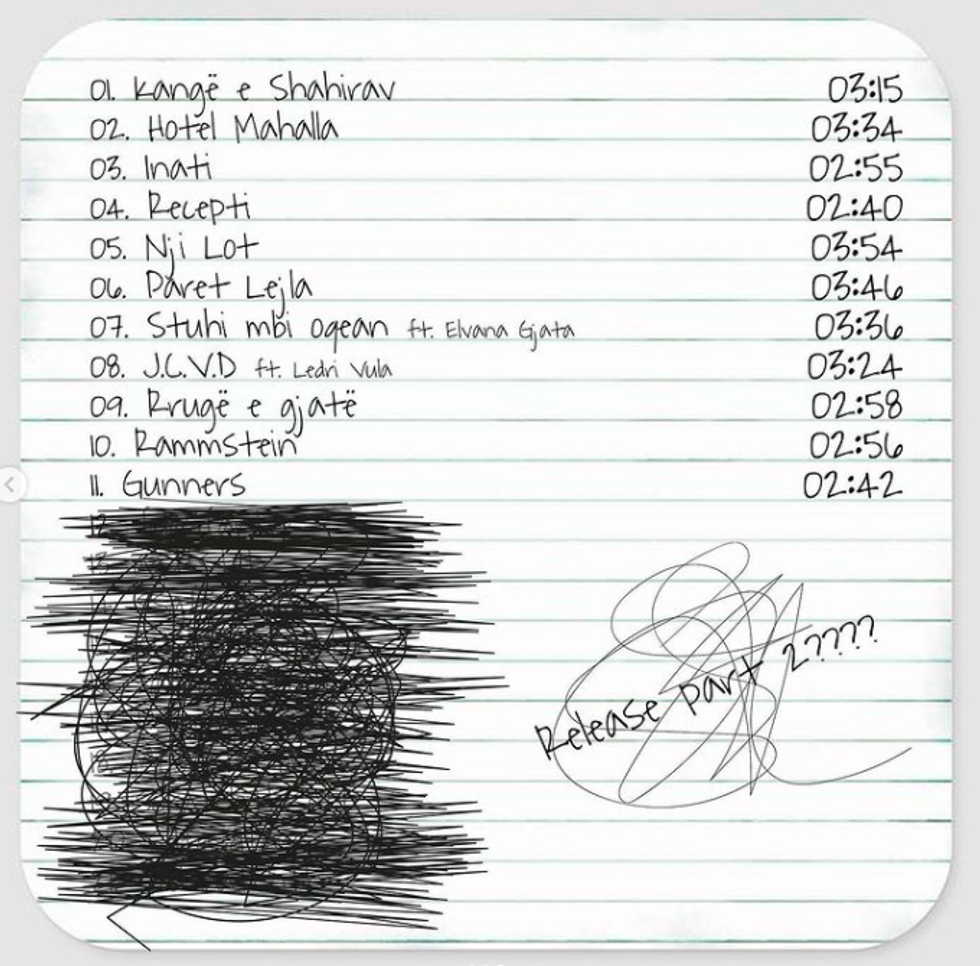 01. Kangë e Shahirav 03:15
02. Hotel Mahalla 03:34
03. Inati 02:55
04. Recepti 02:40
05. Nji Lot 03:54
06. Paret Lejla 03:46
07. Stuhi mbi oqean ft. Elvana Gjata 03:36
08. J.C.V.D ft. Ledri Vula 03:24
09. Rrugë e gjatë 02:58
10. Rammstein 02:56
11. Gunners 02:42
12.
Release part 2????